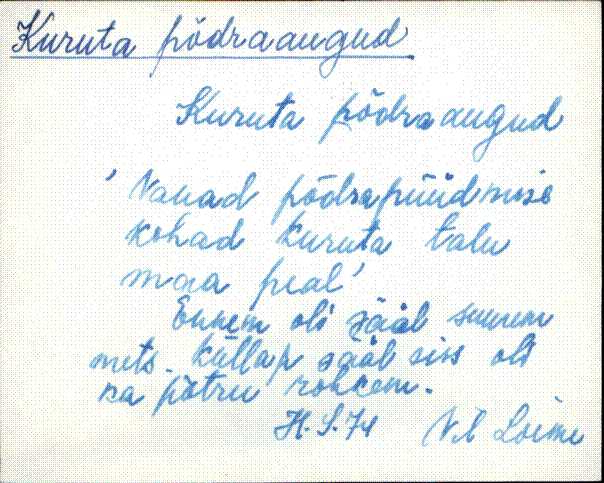 Kuruta põdraaugud
Kuruta põdraaugud
'Vanad põdrapüüdmise
kohad Kuruta talu
maa peal'
Ennem oli sääl suurem
mets. Küllap sääl siis oli
ka põtru rohkem.
H. S. 74 V.l Loime